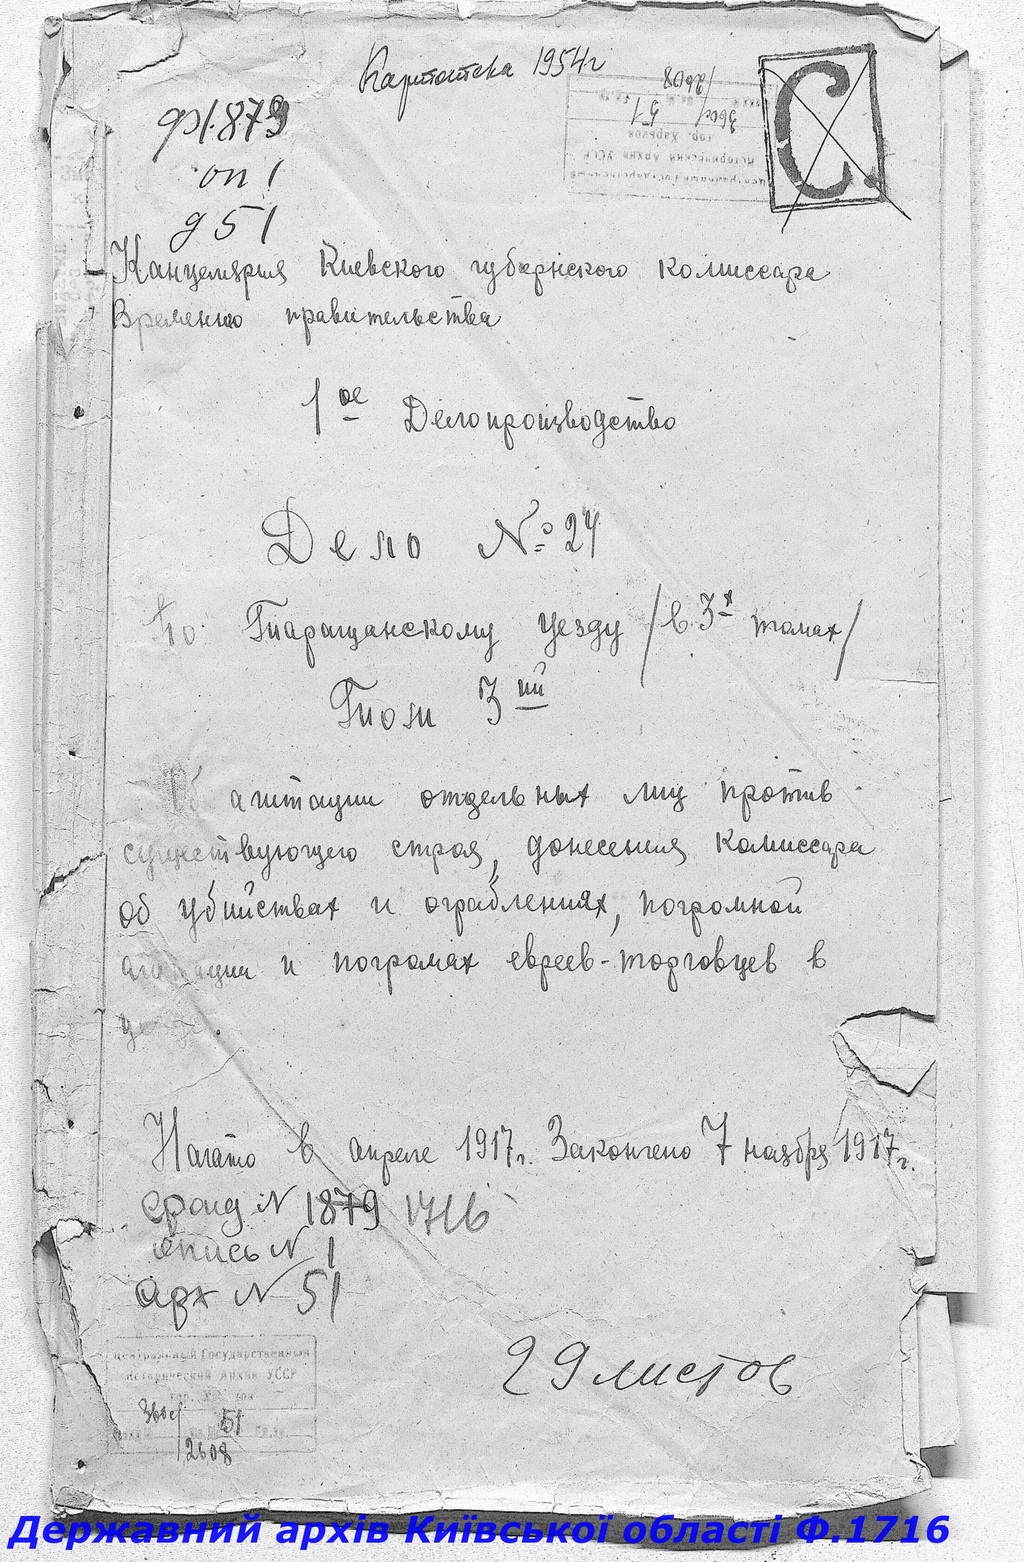 Картотека 1954г
ф1.879
оп 1
д 51
С
Канцелярия Киевского губернского комиссара
Временного правительства
1ое Делопроизводство
Дело № 24
По Таращанскому уезду /в 3х томах/
Том 3ий
Об агитации отдельных лиц против
существующего строя, донесения комиссара
об убийствах и ограблениях, погромной
агитации и погромах евреев-торговцев в
уезде.
Начато в апреле 1917г. Закончено 7 ноября 1917г.
фонд N 1879 1716
опись N 1
арх N 51
29 листов
Центральный Государственный
Исторический Архив УССР
гор. Харьков
51
2608
Державний архів Київської області Ф.1716